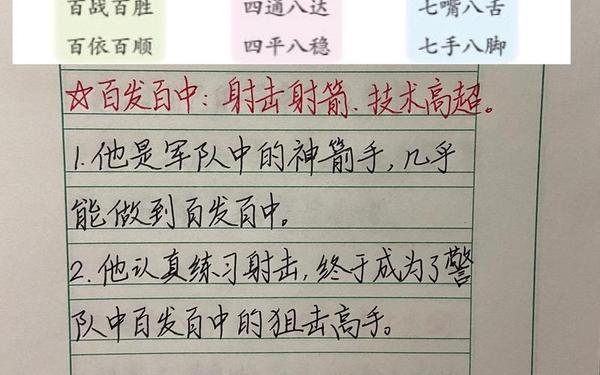 百战百胜 四通八达 七嘴八舌
百依百顺 四平八稳 七手八脚
☆百发百中：射击射箭、技术高超。
1.他是军队中的神箭手，几乎
能做到百发百中。
2.他认真练习射击，终于成为了警
队中百发百中的狙击高手。